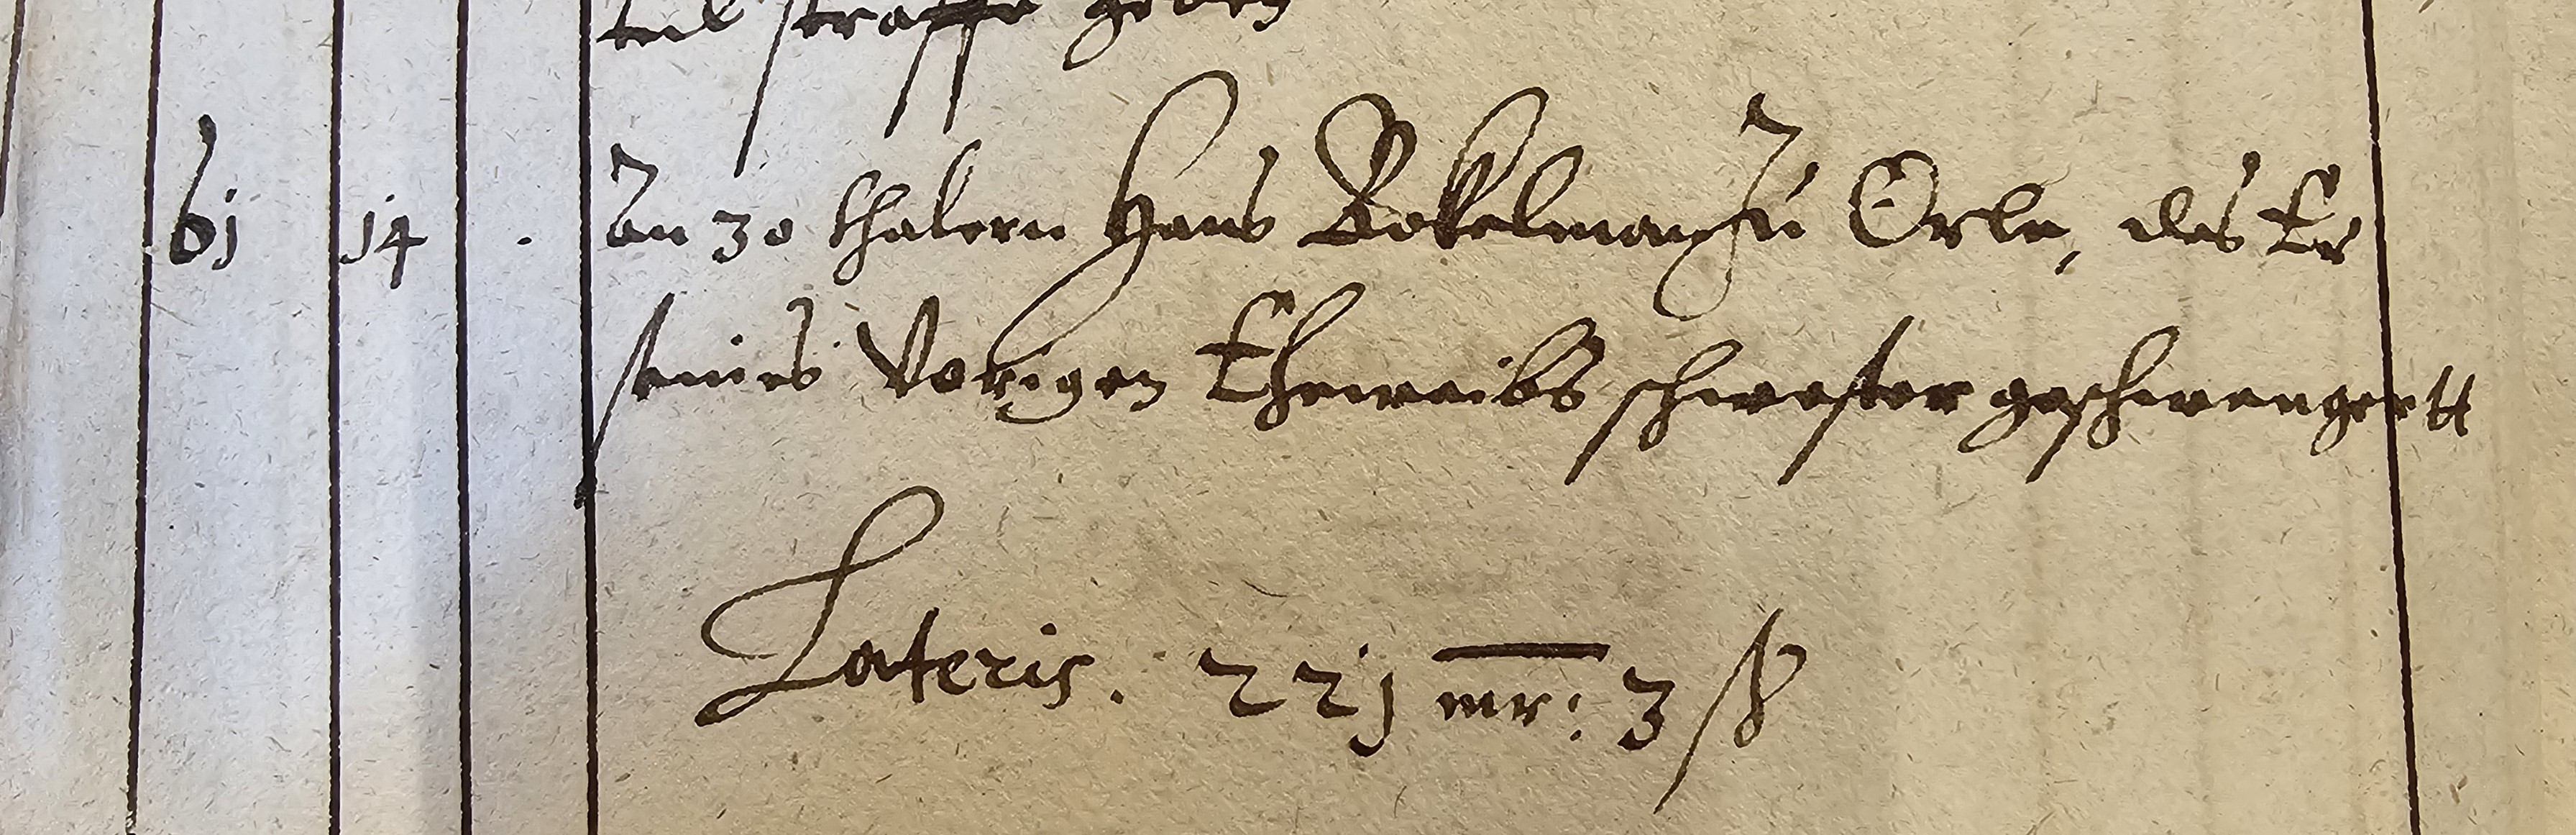 teil straffe geben
61 14 . An 30 thalern Hans Bokelman zu Örle, das Er
seines Vorigen Eheweibs schwester geschwengertt
Lateris. 221 mr: 3 ß